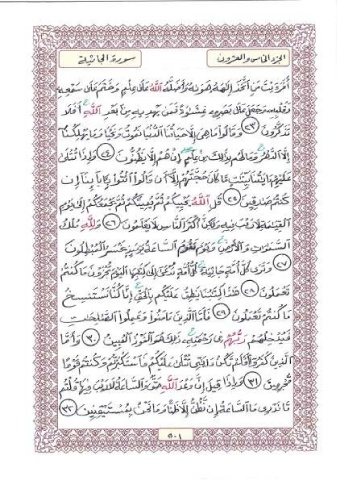 الجزء الخامس والعشرون
سورة الجاثية
أفرءيت من اتخذ إلهه هوىه وأضله الله على علم وختم على سمعه
وقلبه وجعل على بصره غشوة فمن يهديه من بعد الله أفلا
تذكرون ٢٣ وقالوا ما هي إلا حياتنا الدنيا نموت ونحيا وما يهلكنا
إلا الدهر وما لهم بذلك من علم إن هم إلا يظنون ٢٤ وإذا تتلى
عليهم ءايتنا بينت ما كان حجتهم إلا أن قالوا ائتوا بـٔابائنا إن
كنتم صدقين ٢٥ قل الله يحييكم ثم يميتكم ثم يجمعكم إلى يوم
القيمة لا ريب فيه ولكن أكثر الناس لا يعلمون ٢٦ ولله ملك
السموت والأرض ويوم تقوم الساعة يومئذ يخسر المبطلون
٢٧ وترى كل أمة جاثية كل أمة تدعى إلى كتبها اليوم تجزون ما كنتم
تعملون ٢٨ هذا كتبنا ينطق عليكم بالحق إنا كنا نستنسخ
ما كنتم تعملون ٢٩ فأما الذين ءامنوا وعملوا الصلحت
فيدخلهم ربهم في رحمته ذلك هو الفوز المبين ٣٠ وأما
الذين كفروا أفلم تكن ءايتي تتلى عليكم فاستكبرتم وكنتم قوما
مجرمين ٣١ وإذا قيل إن وعد الله حق والساعة لا ريب فيها قلتم
ما ندري ما الساعة إن نظن إلا ظنا وما نحن بمستيقنين ٣٢
٥٠١